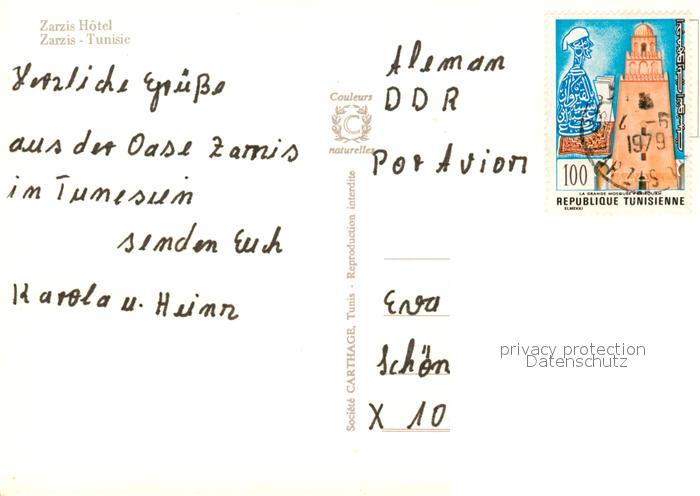 Zarzis Hôtel
Zarzis - Tunisie
Herzliche Grüße
aus der Oase Zarzis
in Tunesien
senden Euch
Karola u. Heinz
Couleurs
C
naturelles
Société CARTHAGE, Tunis - Reproduction interdite
Aleman
DDR
Por Avion
Eva
Schön
X 10
100
4 -6
1979
LA GRANDE MOSQUEE KAIROUAN
REPUBLIQUE TUNISIENNE
ELMEKKI
privacy protection
Datenschutz